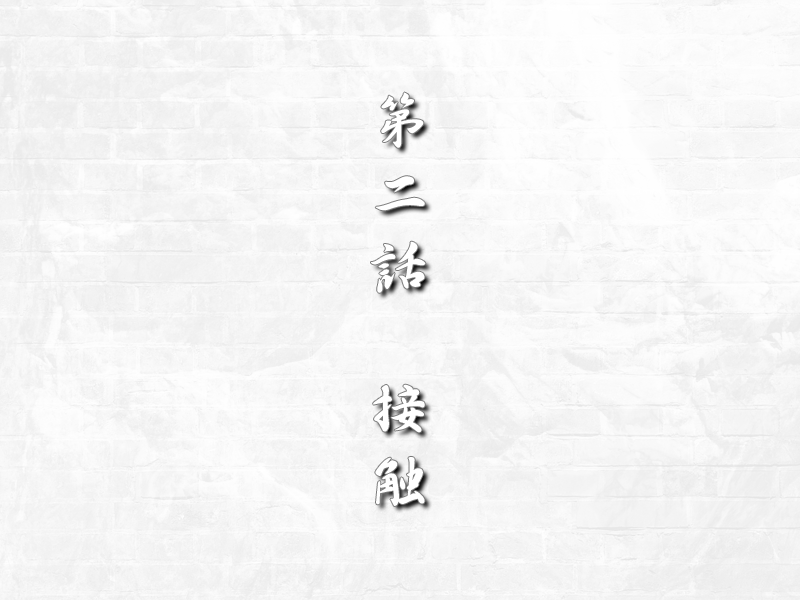 第二話　接触